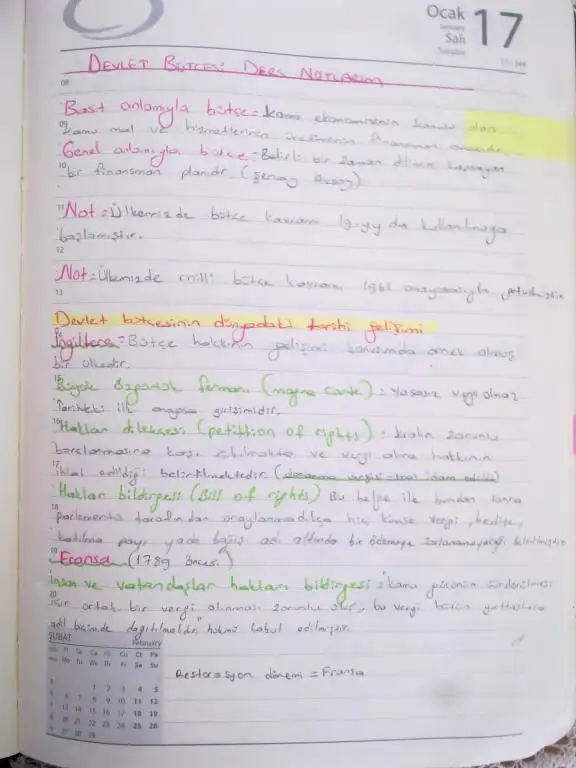 Ocak
January
Salı
Tuesday
17
DEVLET BÜTÇESİ DERS NOTLARIM
08
Basit anlamıyla bütçe = kamu ekonomisinin kanunu olan
09
kamu mal ve hizmetlerinin üretiminin finansman aracıdır.
Genel anlamıyla bütçe = Belirli bir zaman dilimini kapsayan
10
bir finansman planıdır. (Şenay Aksoy)
11
Not = Ülkemizde bütçe kavramı 19. yy da kullanılmaya
başlamıştır.
12
Not = Ülkemizde milli bütçe kavramı 1961 anayasasıyla
13
Devlet bütçesinin dünyadaki tarihi gelişimi
14
İngiltere = Bütçe hakkının gelişimi konusunda örnek olmuş
bir ülkedir.
15
Büyük Özgürlük fermanı (magna carta) = Yasasız vergi olmaz
Tarihteki ilk anayasa girişimidir.
16
Haklar dilekçesi (petittion of rights) = kralın zorunlu
borçlanmasına karşı çıkılmakta ve vergi alma hakkının
17
ihlal edildiği belirtilmektedir (donanma vergisi - kral idam edildi)
Haklar bildirgesi (Bill of rights) Bu belge ile bundan sonra
18
parlemento tarafından onaylanmadıkça hiç kimse vergi, hediye,
katılma payı yada bağış adı altında bir ödemeye zorlanamayacağı belirtilmiştir
19
Fransa (1789 öncesi)
İnsan ve vatandaşlar hakları bildirgesi = "kamu gücünün sürdürülmesi
20
için ortak bir vergi alınması zorunlu olup, bu vergi bütün yurttaşlara
adil biçimde dağıtılmalıdır" hükmü kabul edilmiştir.
ŞUBAT February
Pt Sa Ça Pe Cu Ct Pa
Mo Tu We Th Fr Sa Su
1 2 3 4 5
6 7 8 9 10 11 12
13 14 15 16 17 18 19
20 21 22 23 24 25 26
27 28 29
Restorasyon dönemi = Fransa